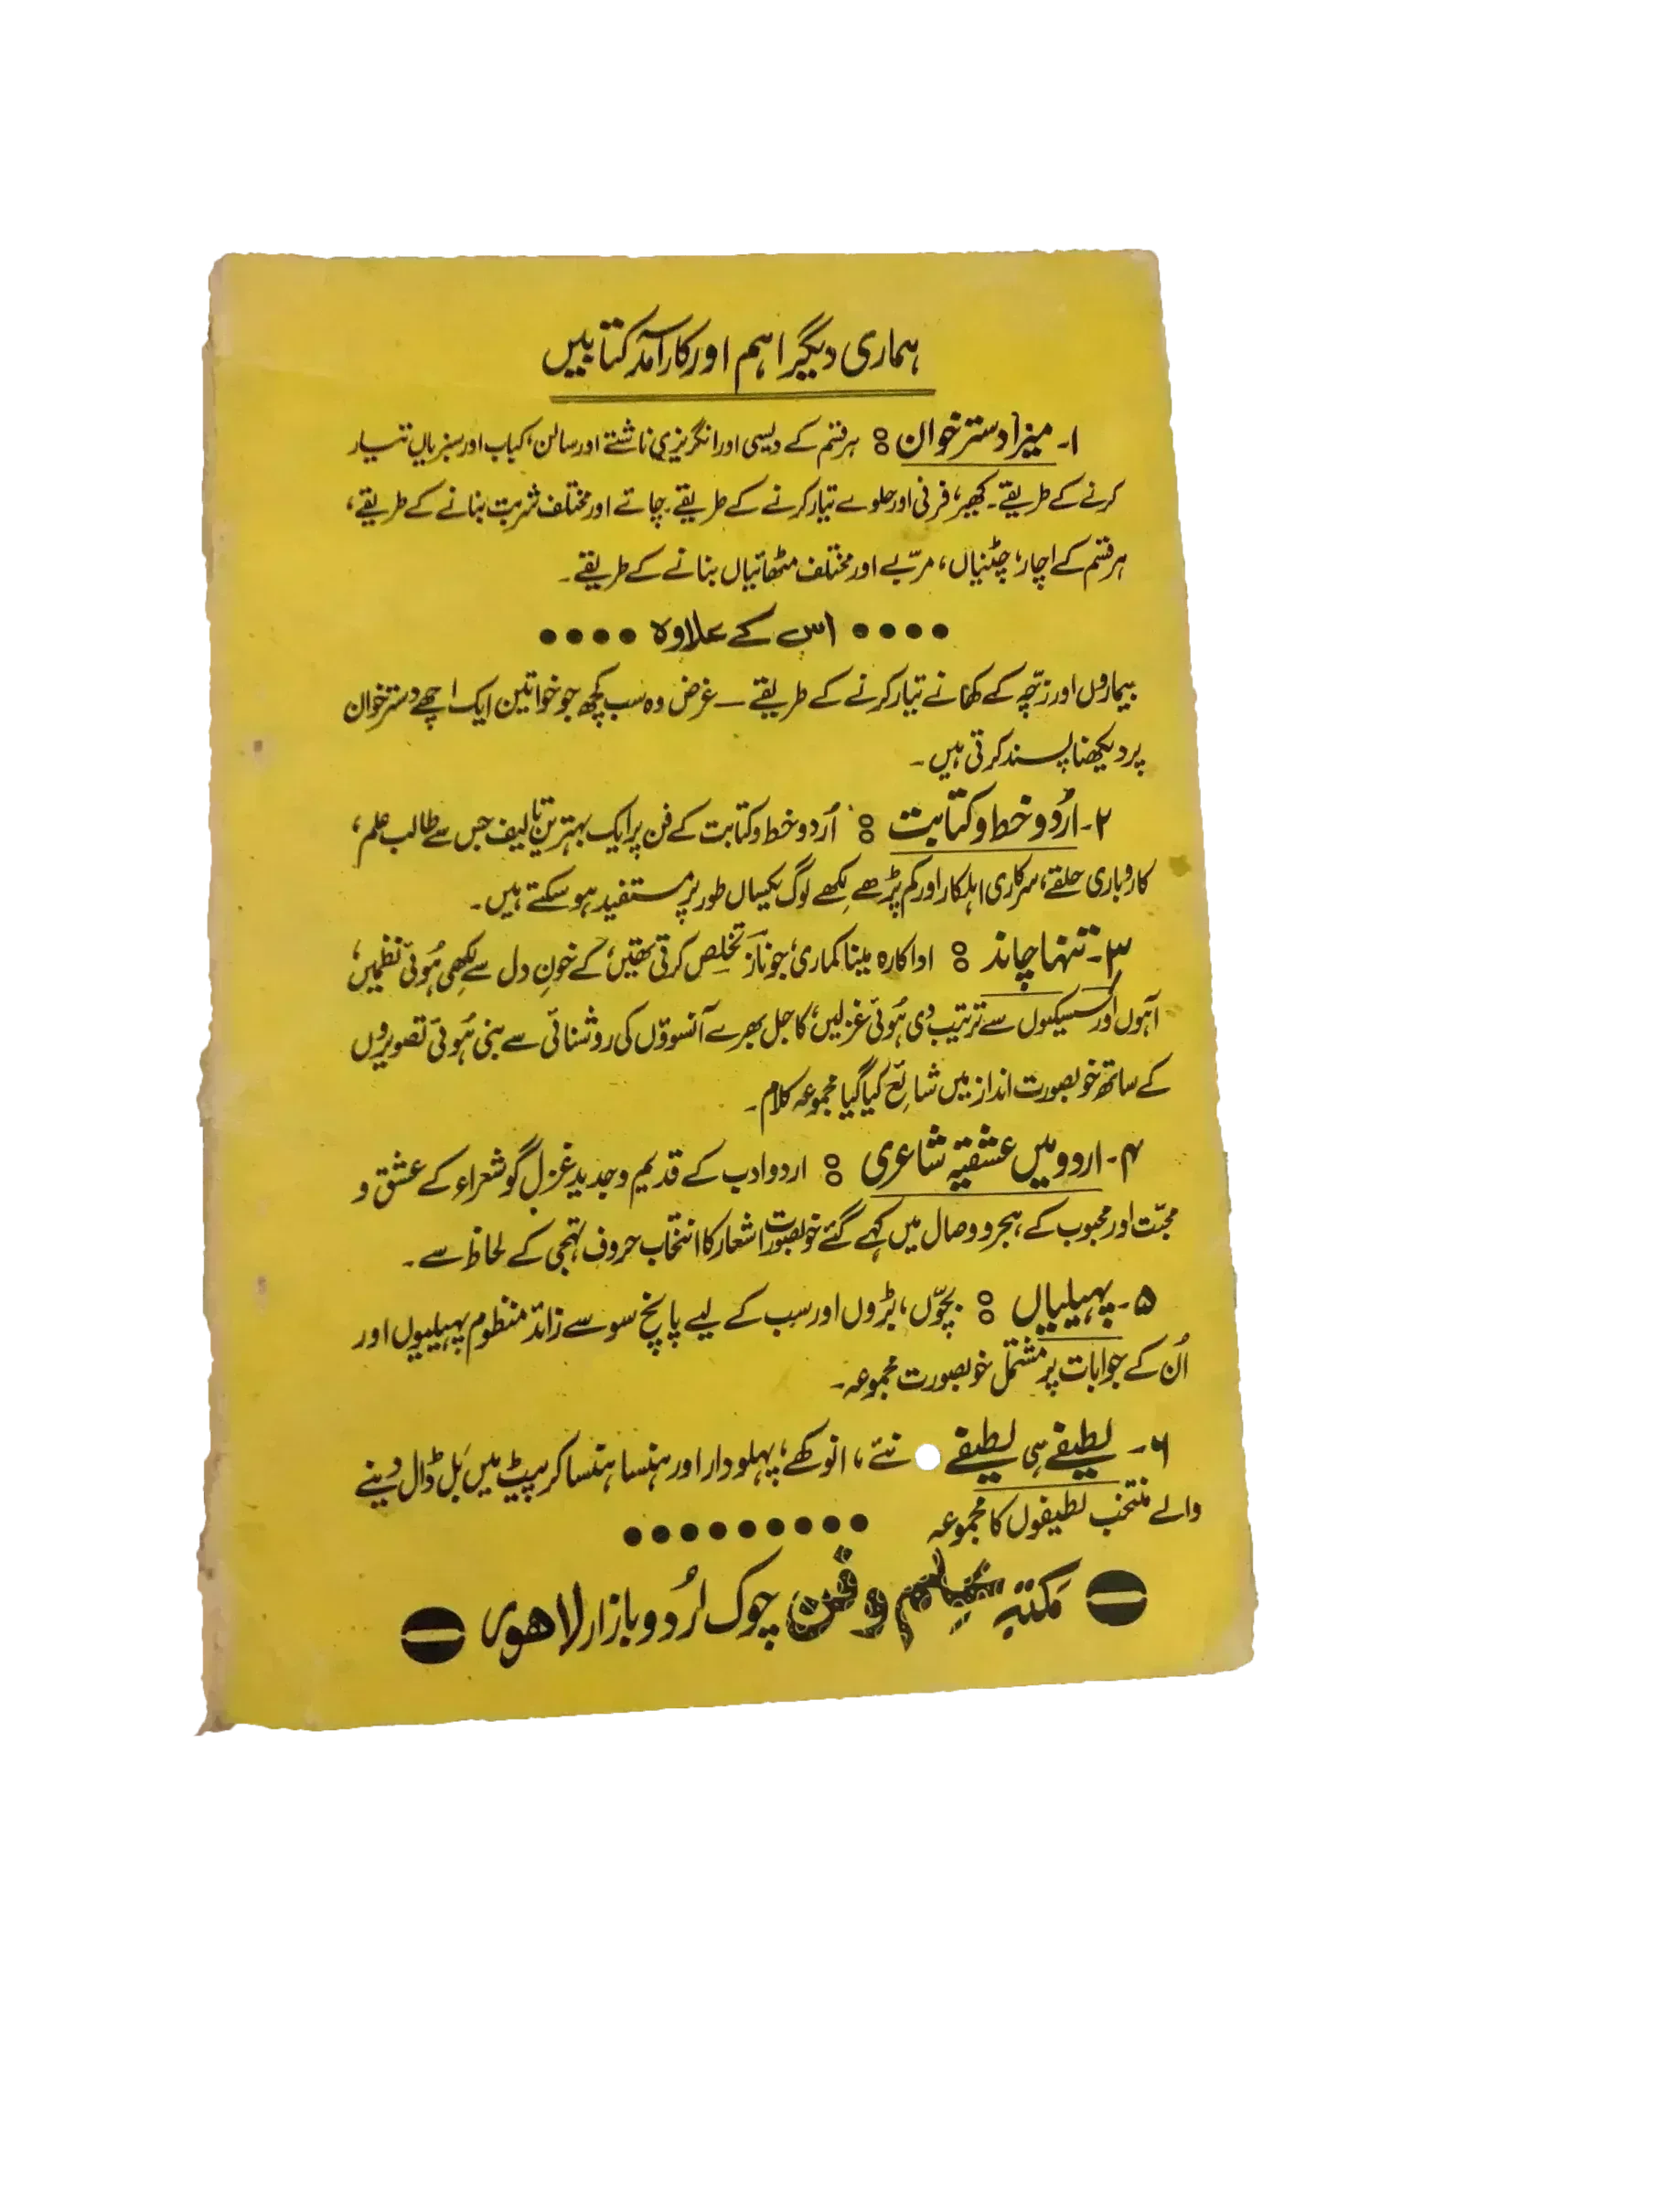 ہماری دیگر اہم اور کارآمد کتابیں
۱۔ میرا دسترخوان : ہر قسم کے دیسی اور انگریزی ناشتے اور سالن، کباب اور سبزیاں تیار
کرنے کے طریقے۔ کھیر، فرنی اور حلوے تیار کرنے کے طریقے۔ چائے اور مختلف شربت بنانے کے طریقے،
ہر قسم کے اچار، چٹنیاں، مربّے اور مختلف مٹھائیاں بنانے کے طریقے۔
•••• اس کے علاوہ ••••
بیماروں اور زچّہ کے کھانے تیار کرنے کے طریقے — غرض وہ سب کچھ جو خواتین ایک اچھے دسترخوان
پر دیکھنا پسند کرتی ہیں۔
۲۔ اُردو خط و کتابت : اُردو خط و کتابت کے فن پر ایک بہترین تالیف جس سے طالب علم،
کاروباری حلقے، سرکاری اہلکار اور کم پڑھے لِکھے لوگ یکساں طور پر مستفید ہو سکتے ہیں۔
۳۔ تنہا چاند : اداکارہ مینا کماری، جو نازؔ تخلص کرتی تھیں، کے خونِ دل سے لِکھی ہُوئی نظمیں،
آہوں اور سسکیوں سے ترتیب دی ہُوئی غزلیں، کاجل بھرے آنسوؤں کی روشنائی سے بنی ہُوئی تصویروں
کے ساتھ خوبصورت انداز میں شائع کیا گیا مجموعہ کلام۔
۴۔ اردو میں عشقیہ شاعری : اردو ادب کے قدیم و جدید غزل گو شعراء کے عشق و
محبّت اور محبوب کے ہجر و وصال میں کہے گئے خوبصورت اشعار کا انتخاب حروف تہجی کے لحاظ سے۔
۵۔ پہیلیاں : بچّوں، بڑوں اور سب کے لیے پانچ سو سے زائد منظوم پہیلیوں اور
اُن کے جوابات پر مشتمل خوبصورت مجموعہ۔
۶۔ لطیفے ہی لطیفے نئے، انوکھے، پہلودار اور ہنسا ہنسا کر پیٹ میں بَل ڈال دینے
والے منتخب لطیفوں کا مجموعہ •••••••••
مکتبہ علم و فن چوک اُردو بازار لاھور